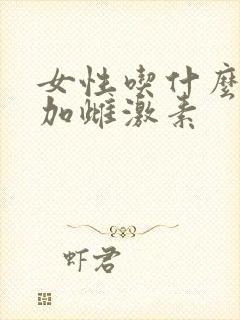 女性喫什麼
加雌激素
虾君